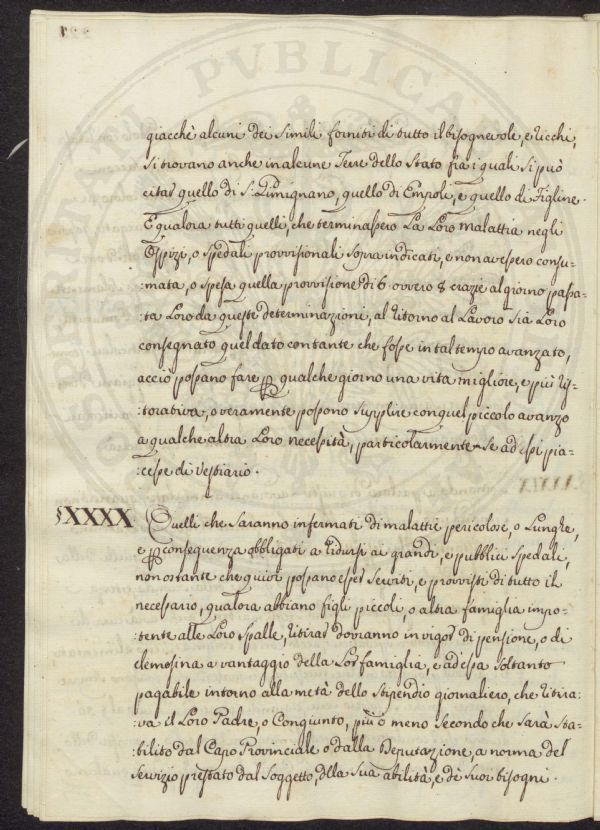 giacchè alcuni dei simili forniti di tutto il bisognevole, e ricchi,
si trovano anche in alcune Terre dello Stato fra i quali si può
citar quello di S. Gimignano, quello di Empoli, e quello di Figline.
E qualora tutti quelli, che terminassero La Loro malattia negli
Ospizi, o spedali provvisionali sopra indicati, e non avessero consu=
=mata, o spesa quella provvisione di 6. ovvero 8 crazie al giorno passa=
=ta Loro da queste determinazioni, al ritorno al Lavoro sia Loro
consegnato quel dato contante che fosse in tal tempo avanzato,
acciò possano fare p qualche giorno una vita migliore, e più ris=
=torativa, o veramente possono supplire con quel piccolo avanzo
a qualche altra Loro necessità, particolarmente se ad essi pia=
=cesse di vestiario.
§XXXX Quelli che saranno infermati di malattie pericolose, o Lunghe,
e p conseguenza obbligati a ridursi ai grandi, e pubblici spedali,
non ostante che quivi possano esser serviti, e provvisti di tutto il
necessario, qualora abbiano figli piccoli, o altra famiglia impo=
=tente alle Loro spalle, ritirar dovranno in vigor di pensione, o di
elemosina a vantaggio della Lor famiglia, e ad essa soltanto
pagabile intorno alla metà dello stipendio giornaliero, che ritira=
=va il Loro Padre, o Congiunto, più o meno secondo che sarà sta=
=bilito dal Capo Provinciale o dalla Deputazione, a norma del
servizio prestato dal soggetto, della sua abilità, e dè suoi bisogni.
PUBLICAE